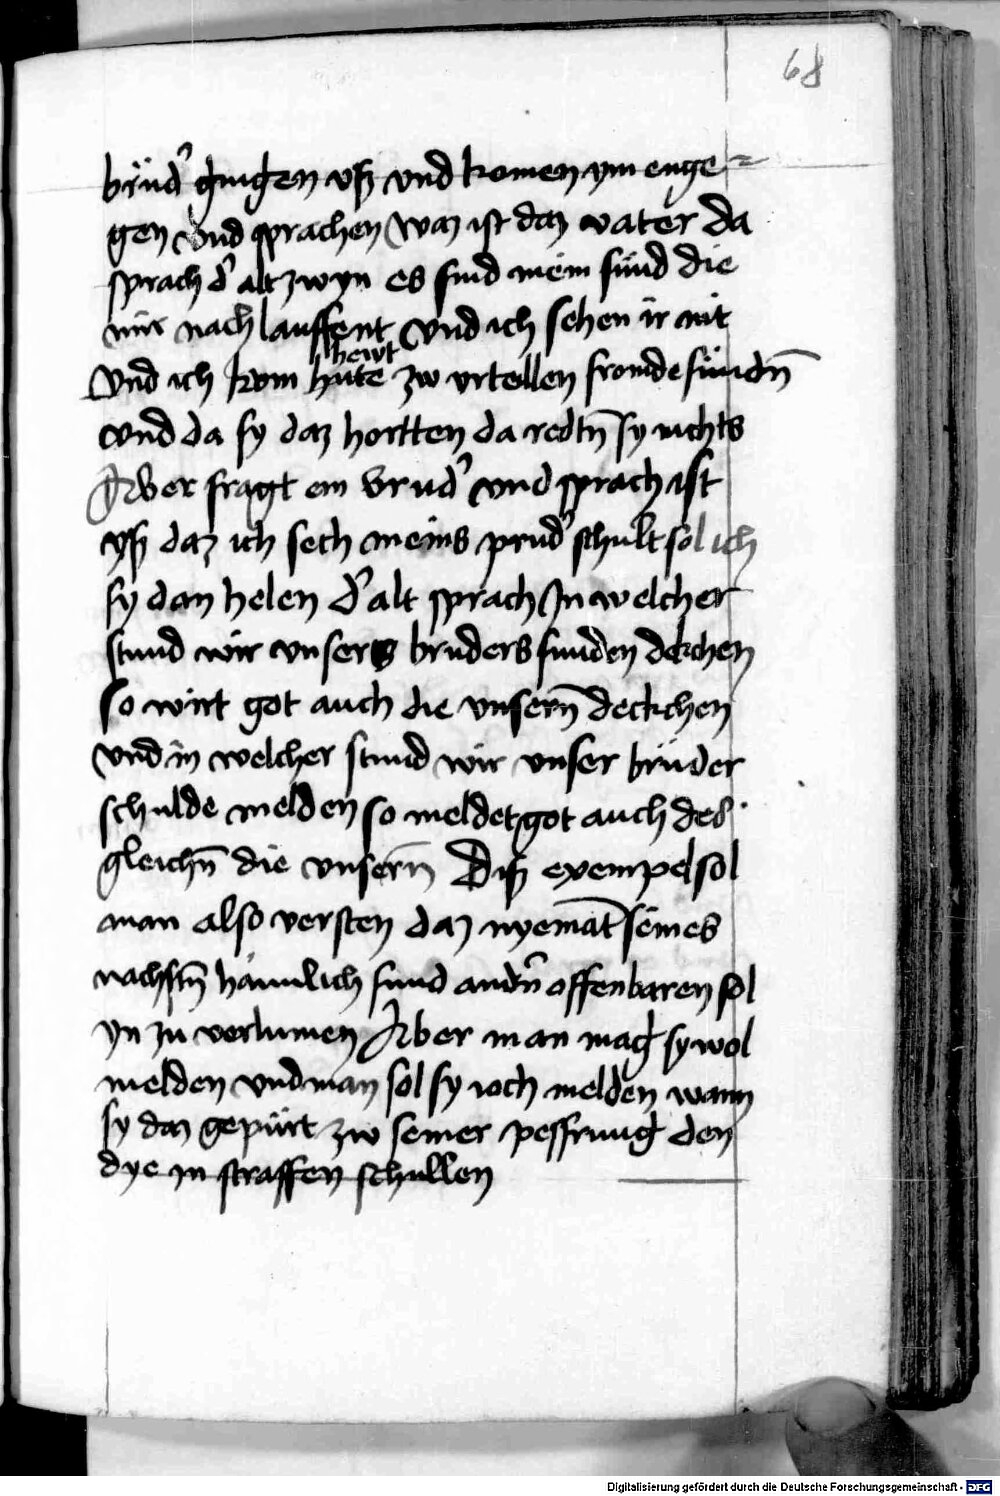 68
brüd' gingen vß vnd komen ym enge-
gen vnd sprachen waz ist daz vater da
sprach d' altzwyn es sind mein sünd die
mir nach lauffent vnd ich sehen ir nit
hewt
vnd ich kom hüte zw vrtellen fromde sündn̄
vnd da sy daz hortten da redtn̄ sy nichts
Aber fragt ein brud' vnd sprach ist
yß daz ich sech meins prud' schult sol ich
sy dan helen d' alt sprach In welcher
stund wir vnsers bruders sunden deckhen
so wirt got auch die vnsern̄ deckchen
vnd in welcher stund wir vnser brüder
schulde melden so meldet got auch des
gleichn̄ die vnsern̄ Diß exempel sol
man also versten daz nyemāt seines
nachstn̄ haimlich sund andn̄ offenbaren sol
yn zu verlumen Aber man mag sy wol
melden vnd man sol sy ioch melden wann
sy daz gepürt zw seiner pessrung den
dye in straffen schullen
Digitalisierung gefördert durch die Deutsche Forschungsgemeinschaft - DFG